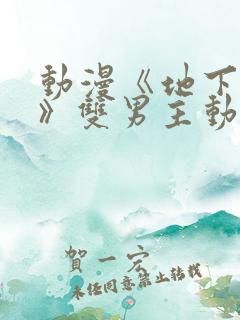 動漫《地下
》雙男主動
賀一宏
未經同意禁止轉載